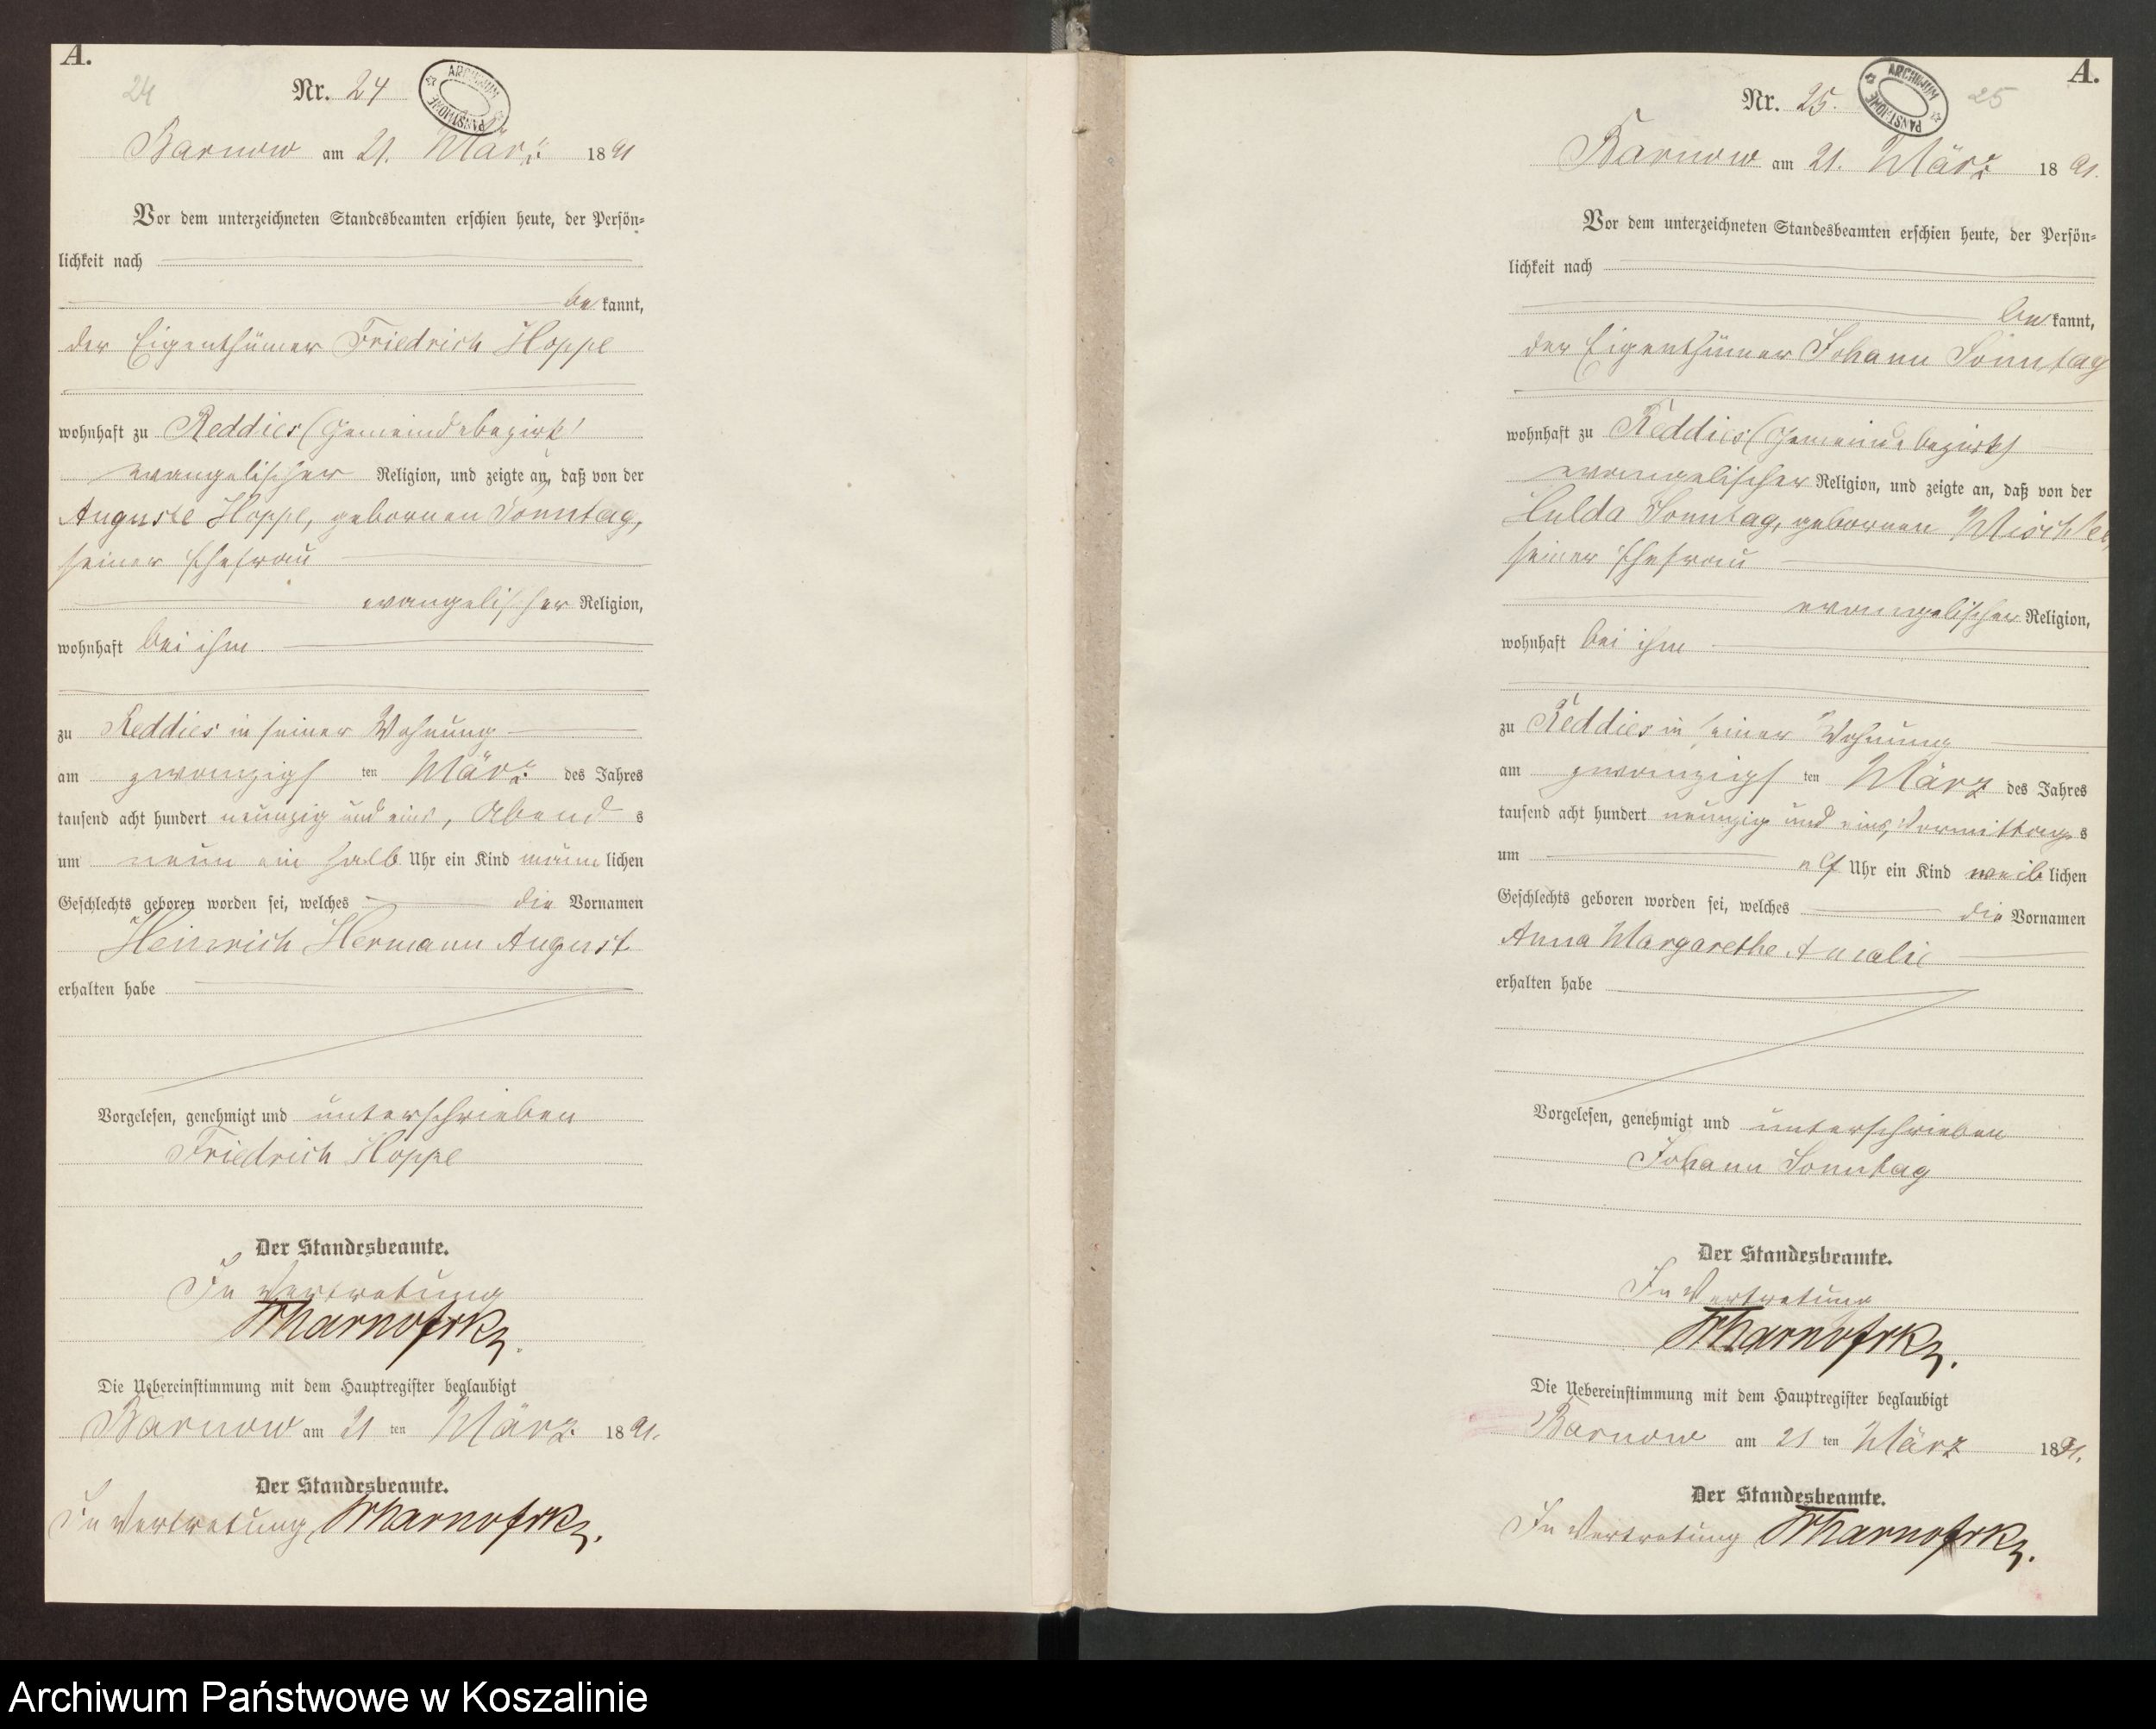 A.
24
Nr. 24
ARCHIWUM PAŃSTWOWE
Barnow am 21. März 1891
Vor dem unterzeichneten Standesbeamten erschien heute, der Persön=
lichkeit nach
be kannt,
der Eigenthümer Friedrich Hoppe
wohnhaft zu Reddies (Gemeindebezirk)
evangelischer Religion, und zeigte an, daß von der
Auguste Hoppe, gebornen Sonntag,
seiner Ehefrau
evangelischer Religion,
wohnhaft bei ihm
zu Reddies in seiner Wohnung
am zwanzigs ten März des Jahres
tausend acht hundert neunzig und eins, Abend s
um neun ein halb Uhr ein Kind männ lichen
Geschlechts geboren worden sei, welches die Vornamen
Heinrich Hermann August
erhalten habe
Vorgelesen, genehmigt und unterschrieben
Friedrich Hoppe
Der Standesbeamte.
In Vertretung
Die Uebereinstimmung mit dem Hauptregister beglaubigt
Barnow am 21 ten März 1891.
Der Standesbeamte.
In Vertretung
A.
25
Nr. 25.
ARCHIWUM PAŃSTWOWE
Barnow am 21. März 1891.
Vor dem unterzeichneten Standesbeamten erschien heute, der Persön=
lichkeit nach
be kannt,
der Eigenthümer Johann Sonntag
wohnhaft zu Reddies (Gemeindebezirk)
evangelischer Religion, und zeigte an, daß von der
Hulda Sonntag, gebornen
seiner Ehefrau
evangelischer Religion,
wohnhaft bei ihm
zu Reddies in seiner Wohnung
am zwanzigs ten März des Jahres
tausend acht hundert neunzig und eins, Vormittag s
um elf Uhr ein Kind weib lichen
Geschlechts geboren worden sei, welches die Vornamen
Anna Margarethe Amalie
erhalten habe
Vorgelesen, genehmigt und unterschrieben
Johann Sonntag
Der Standesbeamte.
In Vertretung
Die Uebereinstimmung mit dem Hauptregister beglaubigt
Barnow am 21 ten März 1891.
Der Standesbeamte.
In Vertretung
Archiwum Państwowe w Koszalinie